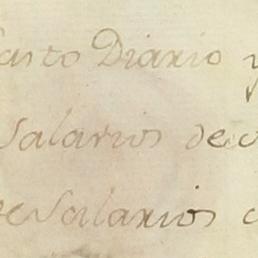 Gasto Diario y
Salarios de
de Salarios